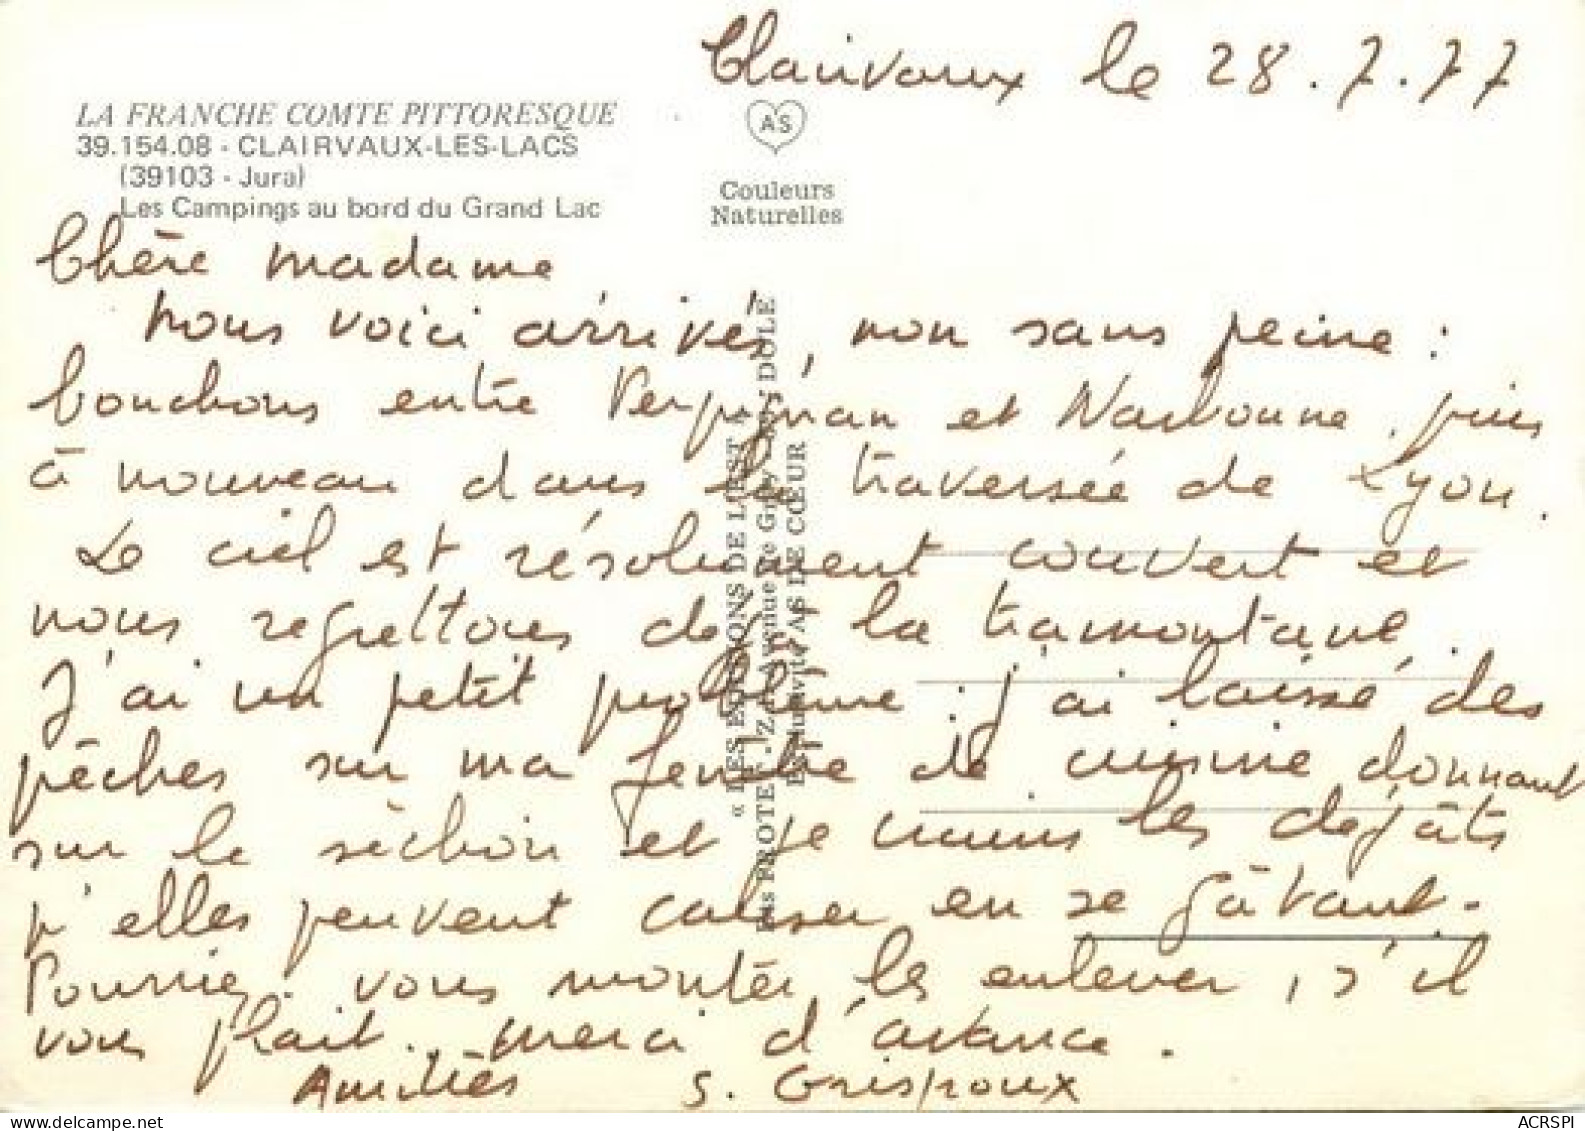 Clairvaux le 28.7.77
LA FRANCHE COMTE PITTORESQUE
39.154.08 - CLAIRVAUX-LES-LACS
(39103 - Jura)
Les Campings au bord du Grand Lac
AS
Couleurs
Naturelles
Chère madame
nous voici arrivés, non sans peine :
bouchons entre Perpignan et Narbonne, puis
à nouveau dans la traversée de Lyon.
Le ciel est résolument couvert et
nous regrettons déjà la tramontane.
J'ai un petit problème : j'ai laissé des
pêches sur ma fenêtre de cuisine donnant
sur le séchoir et je crains les dégâts
qu'elles peuvent causer en se gâtant.
Pourriez-vous monter les enlever, s'il
vous plait.. merci d'avance.
Amitiés S. Crispoux
« LES EDITIONS DE L'EST »
DOLE
AS DE CŒUR
ACRSPI